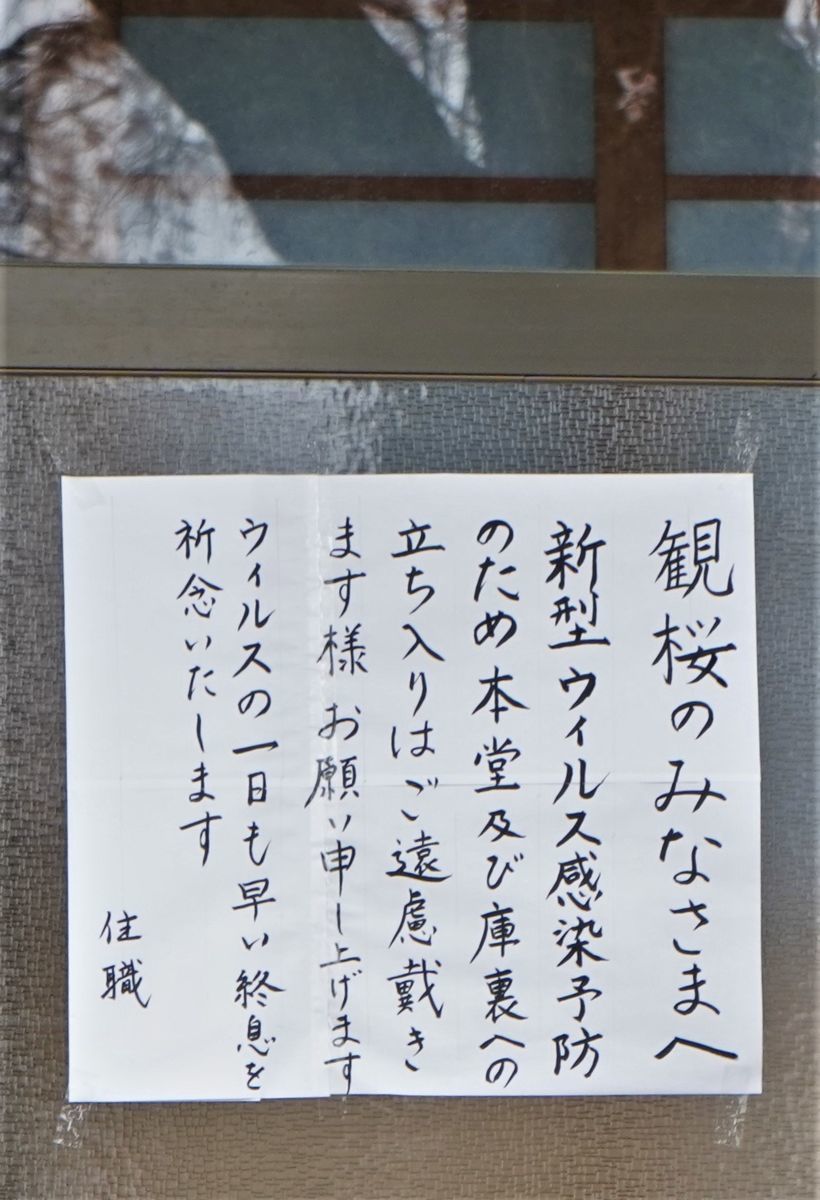 観桜のみなさまへ
新型ウィルス感染予防
のため本堂及び庫裏への
立ち入りはご遠慮戴き
ます様お願い申し上げます
ウィルスの一日も早い終息を
祈念いたします
住職